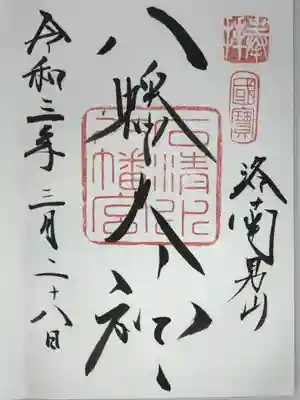 奉拝
國寶
洛南男山
八幡大神
石清水
八幡宮
令和三年三月二十八日